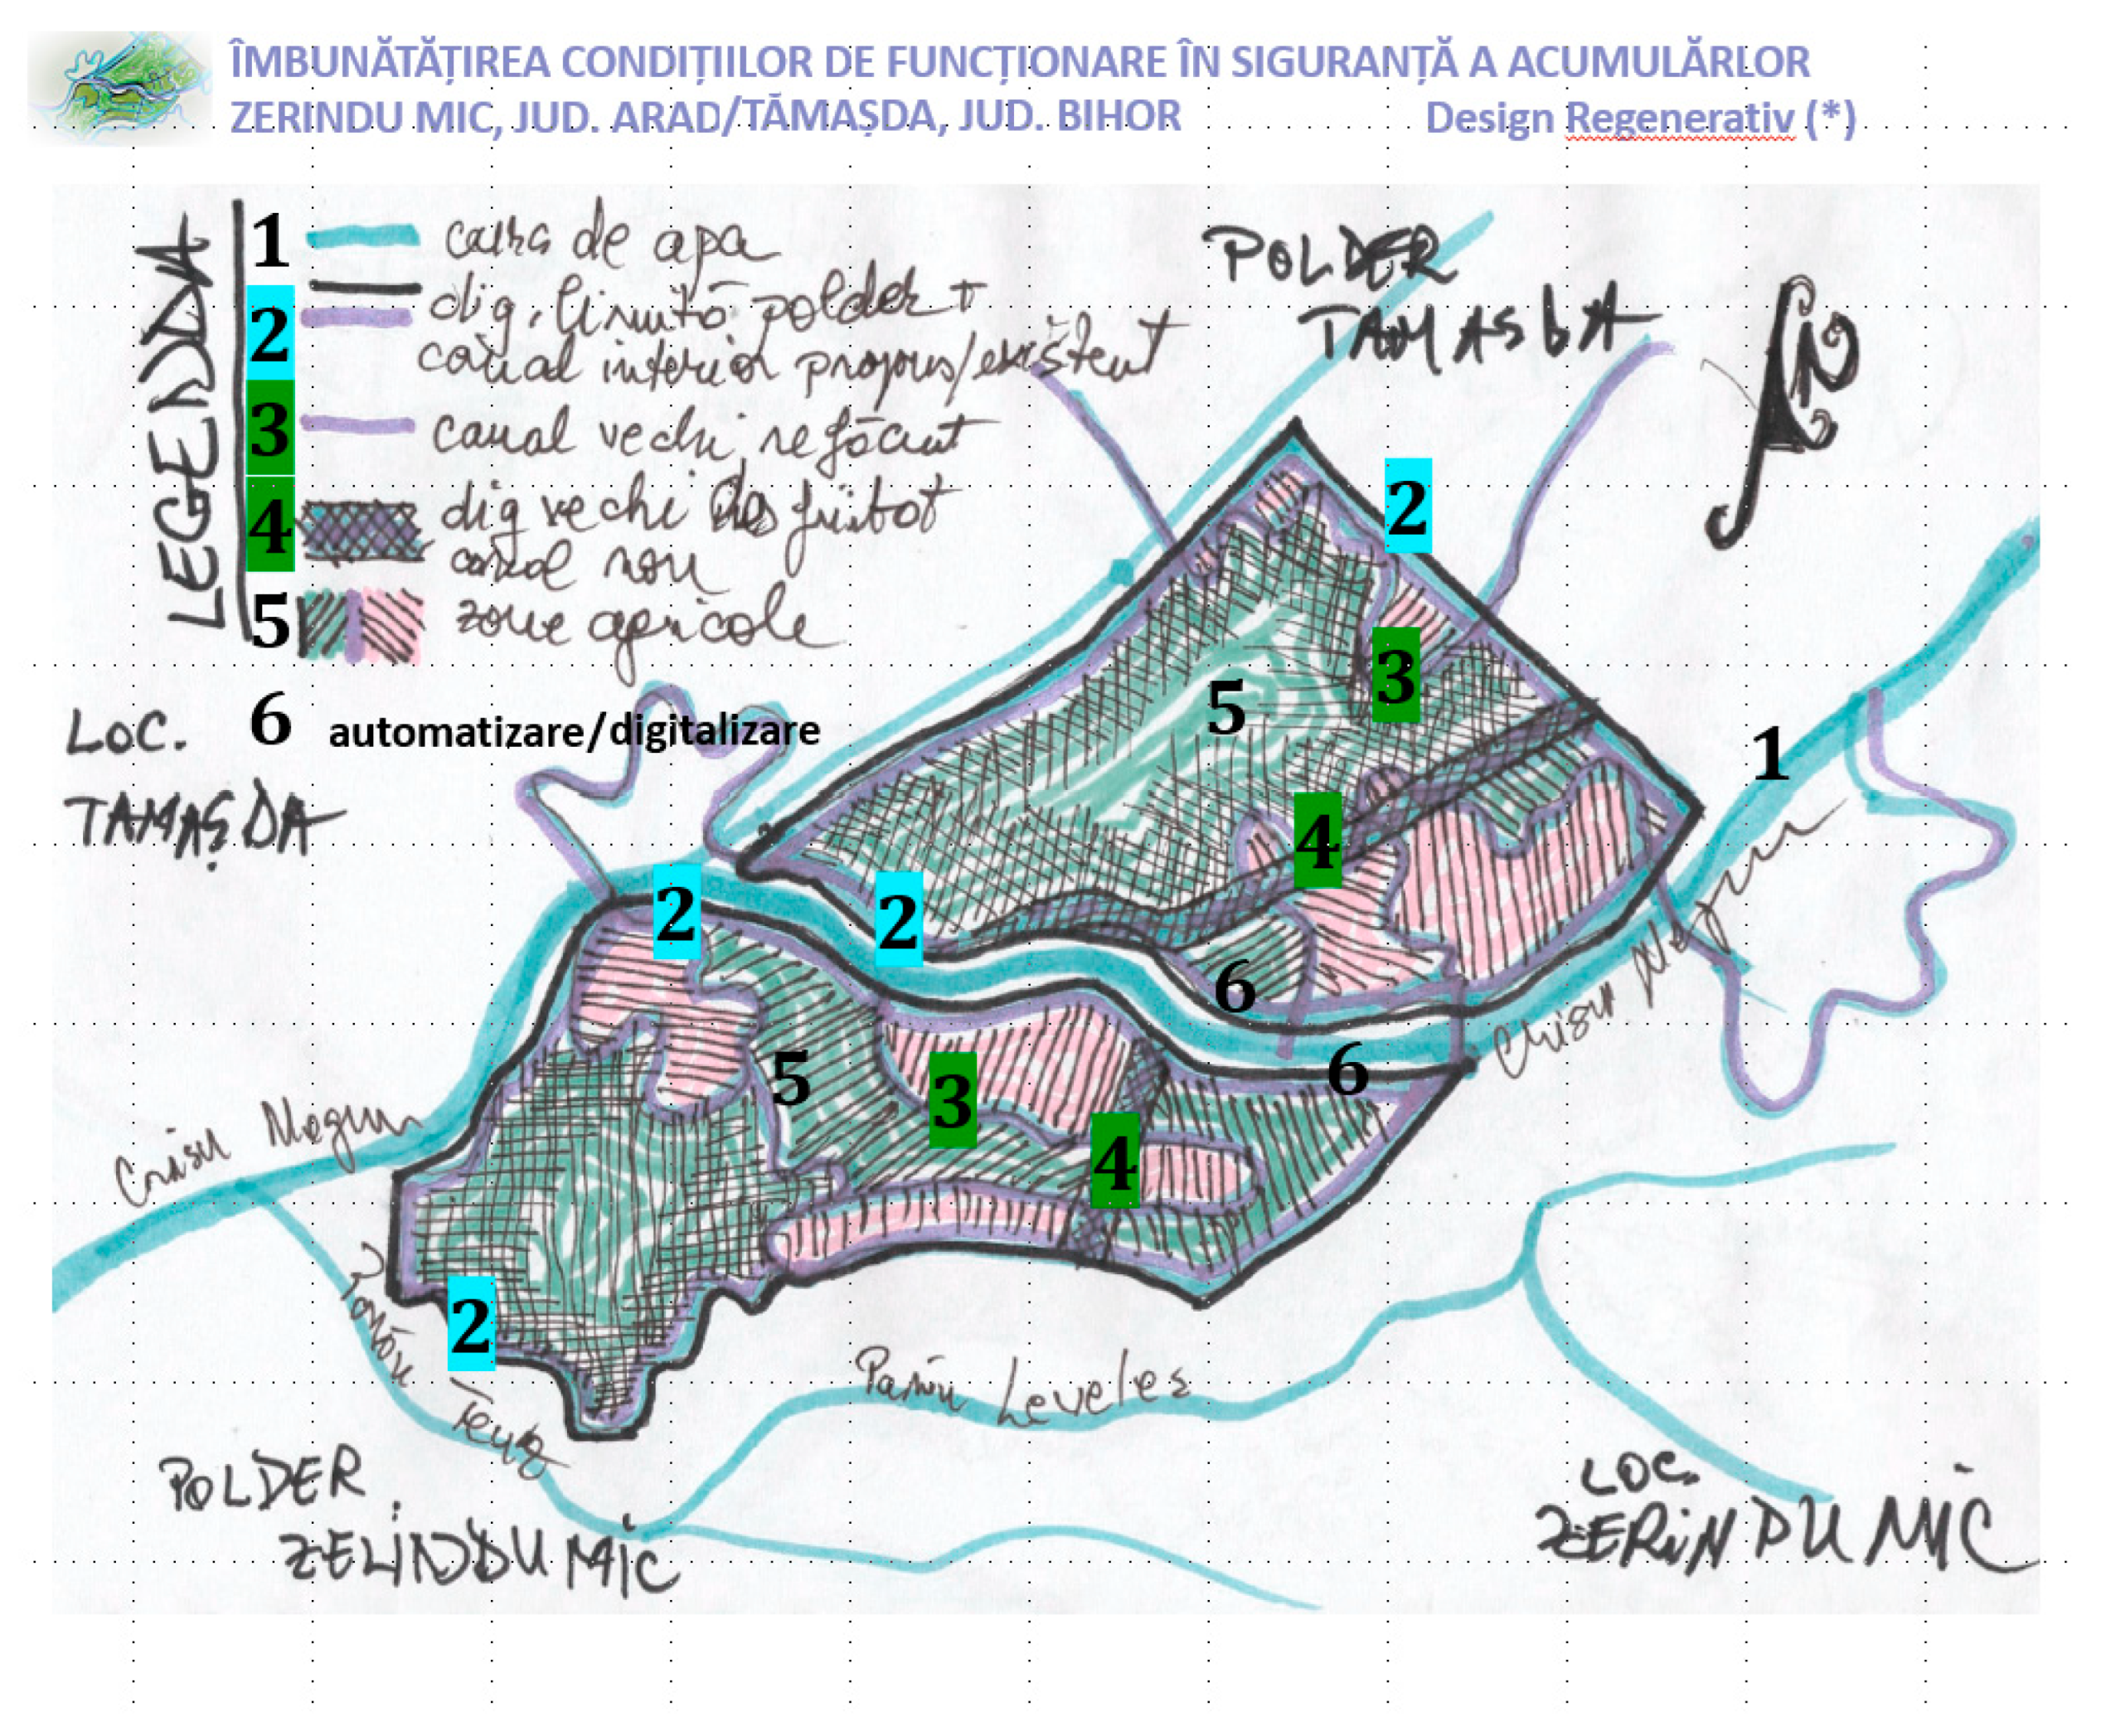 ÎMBUNĂTĂȚIREA CONDIȚIILOR DE FUNCȚIONARE ÎN SIGURANȚĂ A ACUMULĂRLOR
ZERINDU MIC, JUD. ARAD/TĂMAȘDA, JUD. BIHOR Design Regenerativ (*)
LEGENDA
1 curs de apa
2 dig, limită polder +
canal interior propus/existent
3 canal vechi refăcut
4 dig vechi desfiitat
canal nou
5 zone agricole
6 automatizare/digitalizare
POLDER
TAMASDA
N
LOC.
TAMAȘDA
2
3
5
1
4
2
2
6
Crisu Negru
6
5
3
4
Crisu Negru
2
Parau Teuz
Parau Leveles
POLDER
ZELINDU MIC
LOC.
ZERINDU MIC